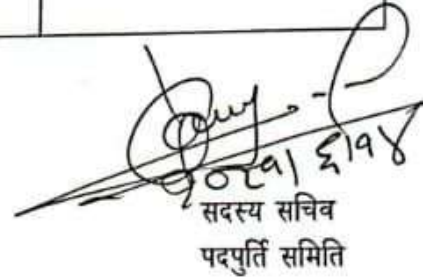 २०८१।६।१४
सदस्य सचिव
पदपुर्ति समिति